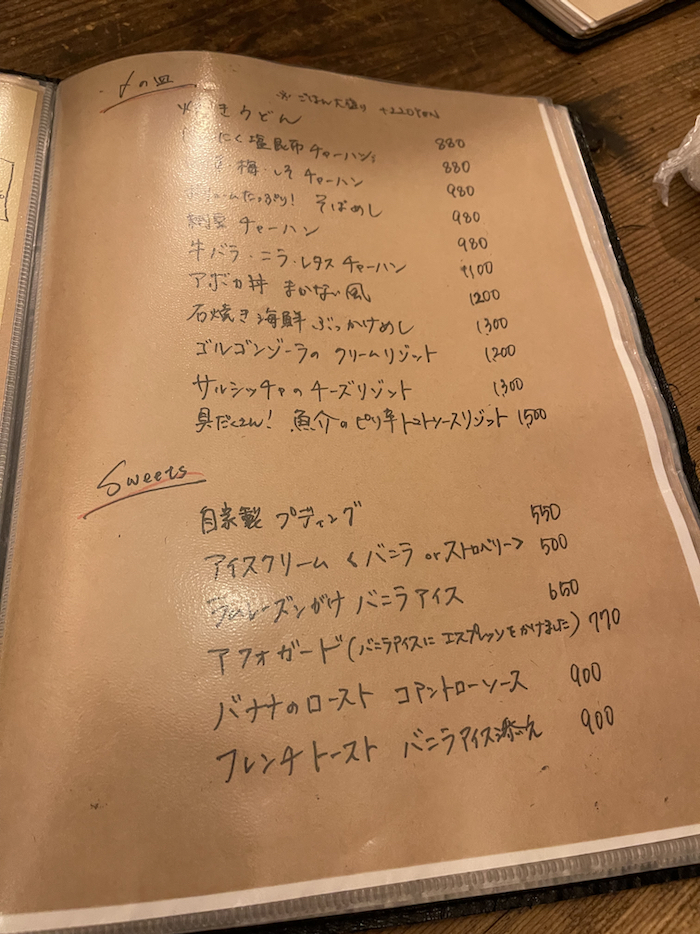 の皿
※ ごはん大盛り +220YEN
焼きうどん 880
にく塩昆布チャーハン 880
梅・しそ チャーハン 980
ボリュームたっぷり! そばめし 980
納豆 チャーハン 980
牛バラ・ニラ・レタス チャーハン 1100
アボカ丼 まかない風 1200
石焼き海鮮 ぶっかけめし 1300
ゴルゴンゾーラの クリームリゾット 1200
サルシッチャの チーズリゾット 1300
具だくさん! 魚介のピリ辛トマトソースリゾット 1500
Sweets
自家製 プディング 550
アイスクリーム <バニラ or ストロベリー> 500
ラムレーズンがけ バニラアイス 650
アフォガード (バニラアイスに エスプレッソをかけました) 770
バナナのロースト コアントローソース 900
フレンチトースト バニラアイス添え 900